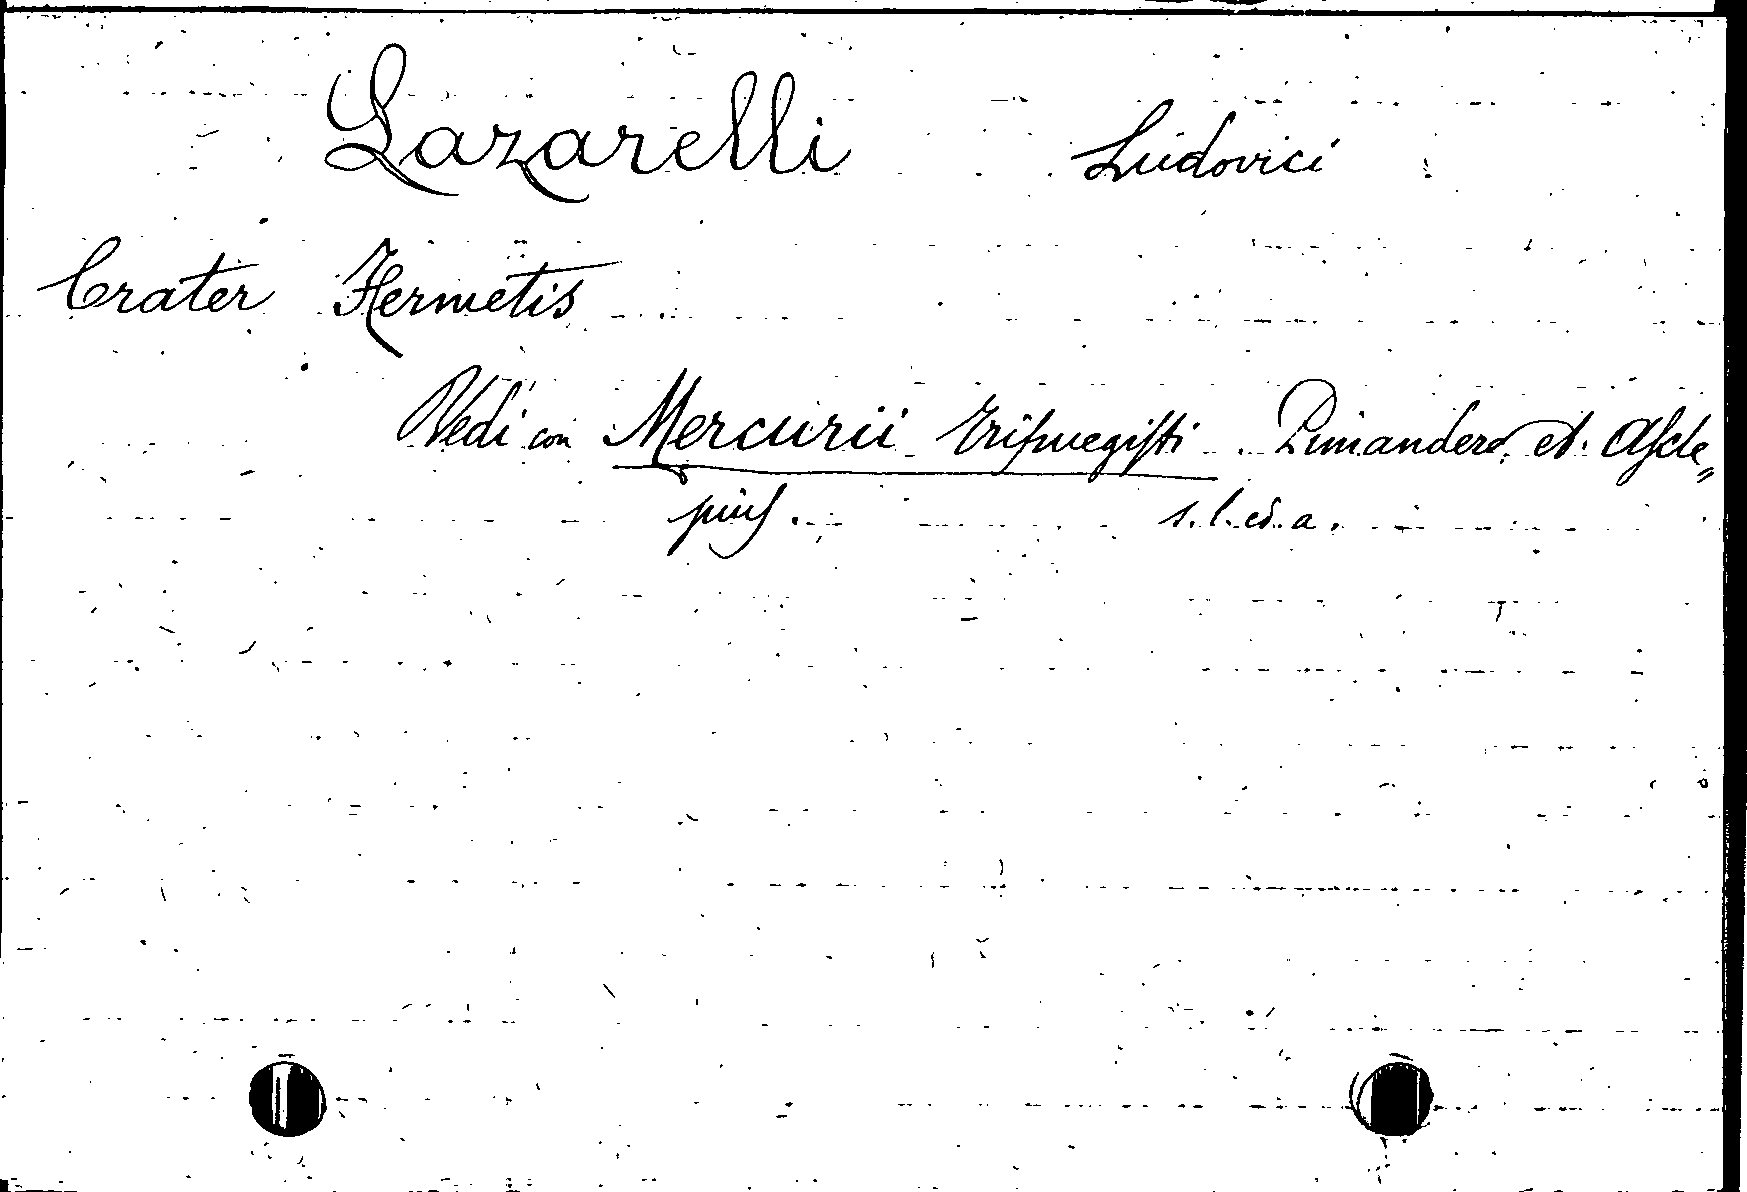 Lazarelli Ludovici
Crater Hermetis
Vedi con Mercurii Trismegisti. Pimandero et Ascle„
pius. s.l.ed.a.